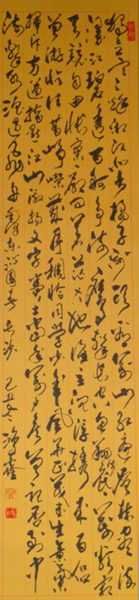 独立寒秋湘江北去橘子洲头看万山红遍层林尽染漫
江碧透百舸争流鹰击长空鱼翔浅底万类霜
天竞自由怅寥廓问苍茫大地谁主沉浮携来百侣
曾游忆往昔峥嵘岁月稠恰同学少年风华正茂书生意气
挥斥方遒指点江山激扬文字粪土当年万户侯曾记否到中
流击水浪遏飞舟毛泽东词沁园春长沙己丑冬